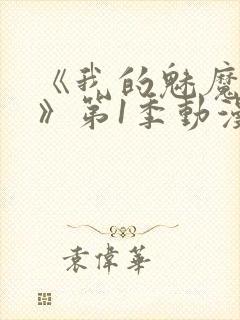 《我的魅魔
》第1季動漫
袁偉華